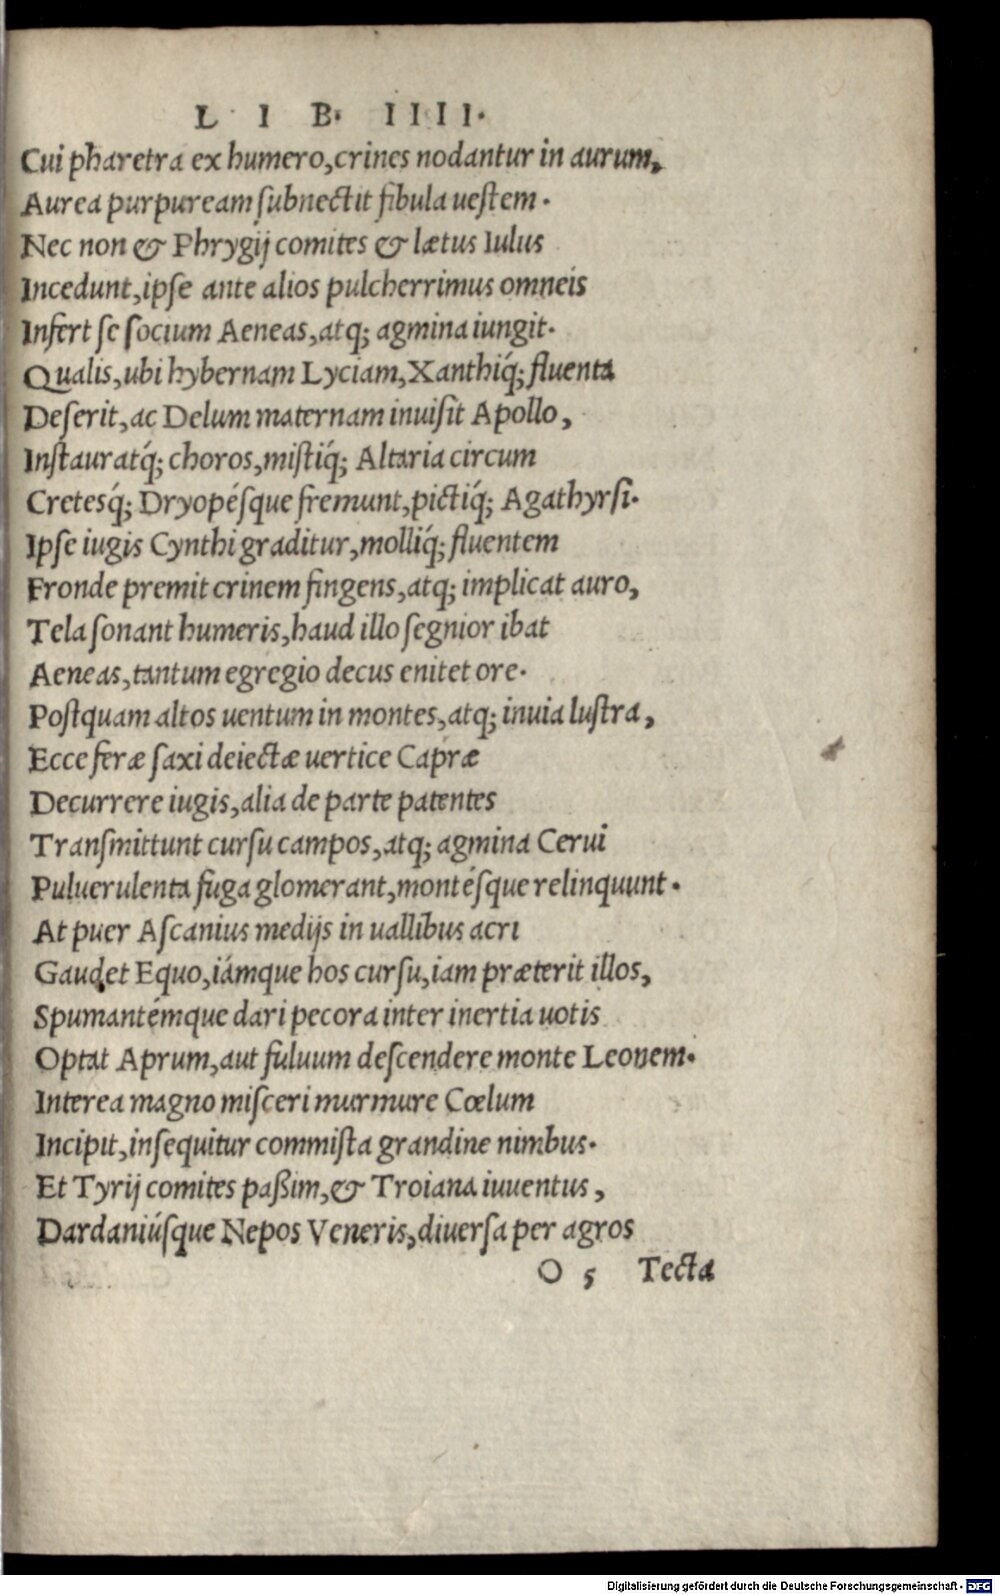 L I B. IIII.
Cui pharetra ex humero,crines nodantur in aurum,
Aurea purpuream ſubnectit fibula ueſtem.
Nec non & Phrygij comites & lætus Iulus
Incedunt,ipſe ante alios pulcherrimus omneis
Infert ſe ſocium Aeneas,atq; agmina iungit.
Qualis,ubi hybernam Lyciam,Xanthiq́; fluenta
Deſerit,ac Delum maternam inuiſit Apollo,
Inſtauratq́; choros,miſtiq́; Altaria circum
Cretesq́; Dryopéſque fremunt,pictiq́; Agathyrſi.
Ipſe iugis Cynthi graditur,molliq́; fluentem
Fronde premit crinem fingens,atq; implicat auro,
Tela ſonant humeris,haud illo ſegnior ibat
Aeneas,tantum egregio decus enitet ore.
Poſtquam altos uentum in montes,atq; inuia luſtra,
Ecce feræ ſaxi deiectæ uertice Capræ
Decurrere iugis,alia de parte patentes
Tranſmittunt curſu campos,atq; agmina Cerui
Puluerulenta fuga glomerant,montéſque relinquunt.
At puer Aſcanius medijs in uallibus acri
Gaudet Equo,iámque hos curſu,iam præterit illos,
Spumantémque dari pecora inter inertia uotis
Optat Aprum,aut fuluum deſcendere monte Leonem.
Interea magno miſceri murmure Cœlum
Incipit,inſequitur commiſta grandine nimbus.
Et Tyrij comites paßim,& Troiana iuuentus,
Dardaniúſque Nepos Veneris,diuerſa per agros
O 5 Tecta
Digitalisierung gefördert durch die Deutsche Forschungsgemeinschaft - DFG